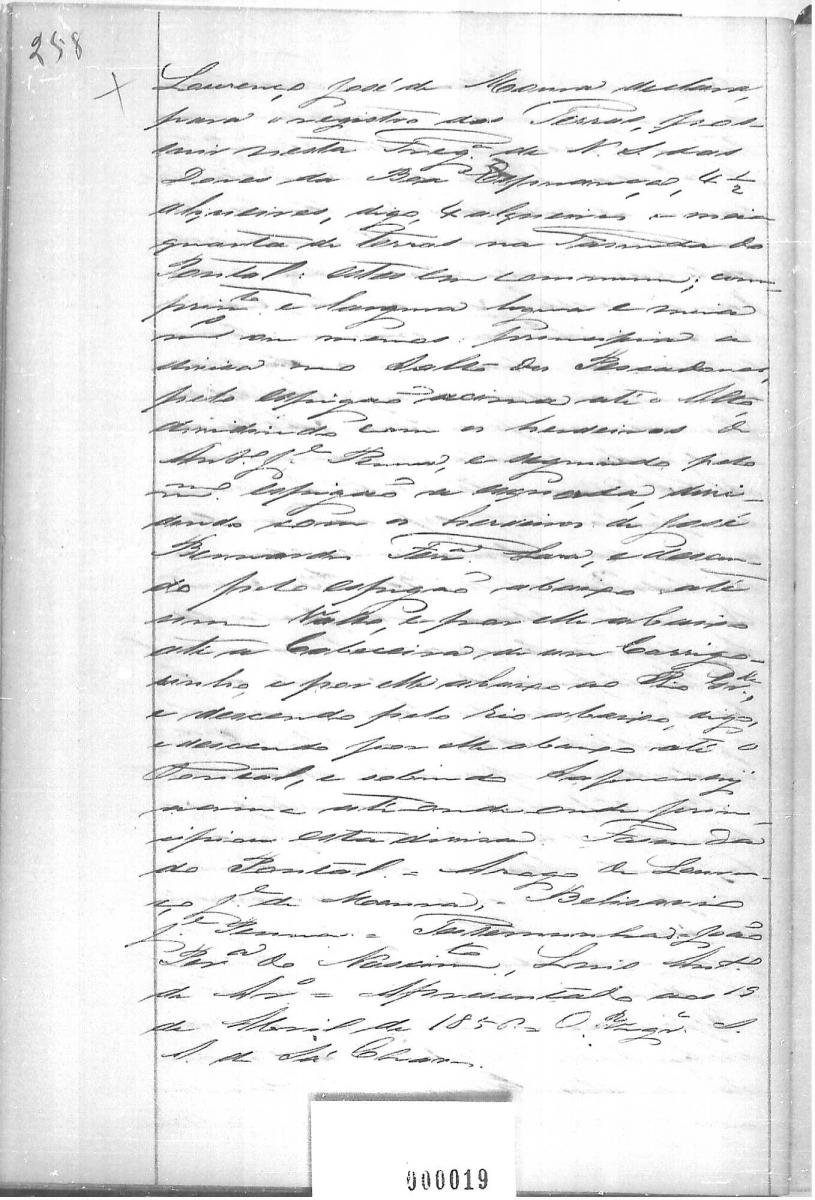 258
Lourenço José de Moura declara,
para o registro das Terras, pos-
suir nesta Freg.ª de N. S. das
Dores da Boa Esperança, 4 1/2
alqueires, digo, 4 alqueires e meia
quarta de terras na Fazenda do
Pontal: estas em commum; com-
prim.to e largura legoa e meia
m.s ou menos. Principia a
divisa no Salto dos Pescadores,
pelo espigão acima até o Alto,
dividindo com os herdeiros de
Ant.º J.e Penna, e seguindo pelo
m.mo espigão a esquerda, divi-
dindo com os herdeiros de José
Bernardes Lara, e descen-
do pelo espigão abaixo até
um Vallo, e por elle abaixo
até a Cabeceira de um Corrigo-
sinho, e por elle abaixo ao Rio Gr.de,
e descendo pelo rio abaixo, digo,
e descendo por elle abaixo até o
Pontal, e subindo Sapucay
acima até onde onde prin-
cipiou esta divisa. Fazenda
do Pontal. = Arogo de Louren-
ço J.e de Moura, = Belisario
J.e Penna = Testemunhas João
Per.ª do Nascim.to, Luis Ant.º
de Ar.º = Apresentado aos 19
de Abril de 1856 = O. Regr. S.
A. de Sá Chaves.
000019